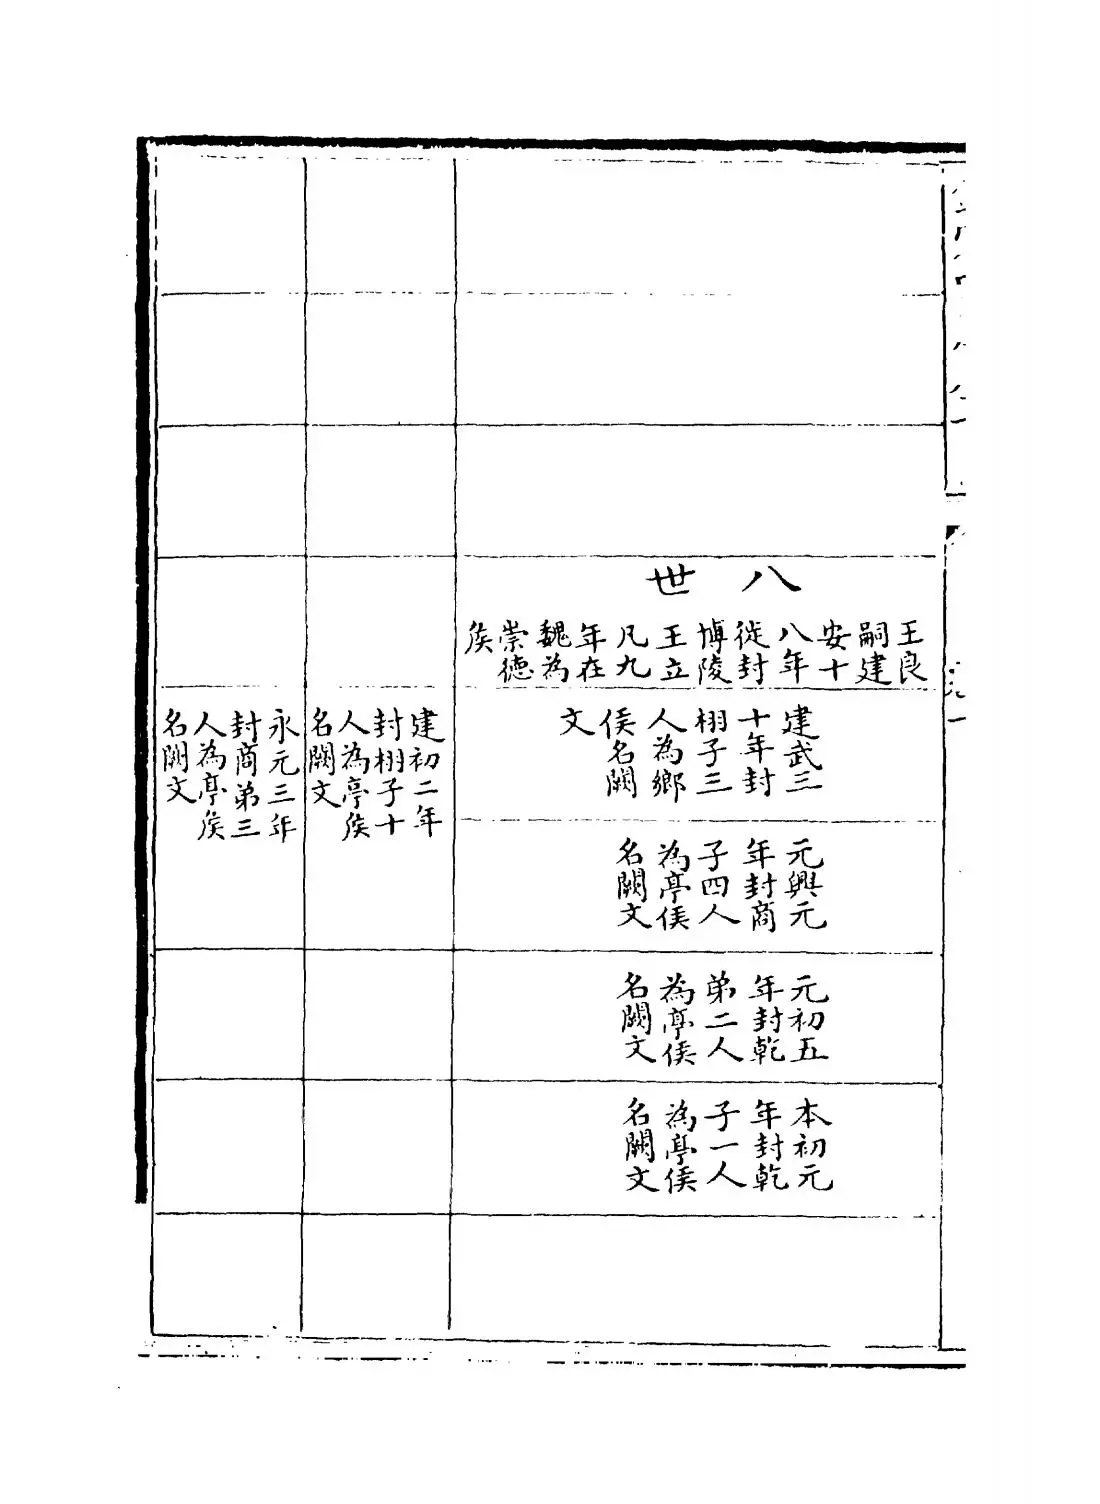 八世
王良
嗣建
安十
八年
徙封
博陵
王立
凡九
年在
魏為
崇德
侯
建武三
十年封
栩子三
人為鄉
侯名闕
文
建初二年
封栩子十
人為亭侯
名闕文
永元三年
封商弟三
人為亭侯
名闕文
元興元
年封商
子四人
為亭侯
名闕文
元初五
年封乾
弟二人
為亭侯
名闕文
本初元
年封乾
子一人
為亭侯
名闕文